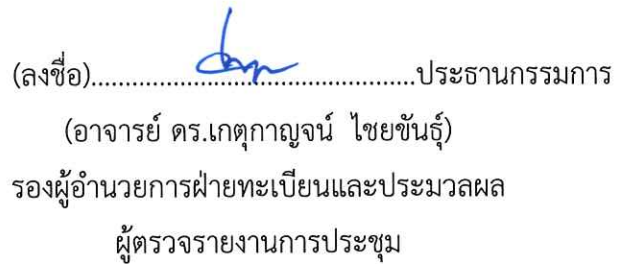 (ลงชื่อ)................................................ประธานกรรมการ
(อาจารย์ ดร.เกตุกาญจน์ ไชยขันธุ์)
รองผู้อำนวยการฝ่ายทะเบียนและประมวลผล
ผู้ตรวจรายงานการประชุม